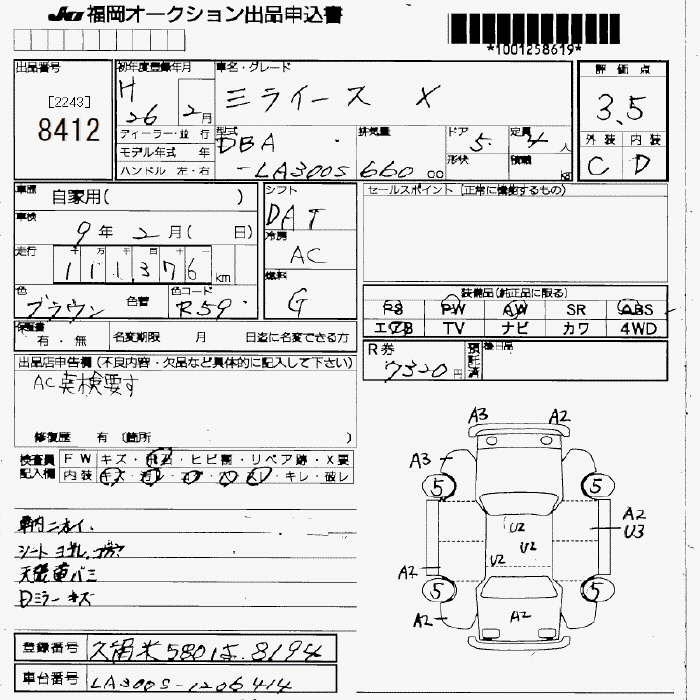 JU 福岡オークション出品申込書
*1001258619*
出品番号
[2243]
8412
初年度登録年月
H
26 2月
車名・グレード
ミライース X
ディーラー・並行
モデル年式 年
ハンドル 左・右
型式
DBA
-LA300S
排気量
660 cc
ドア
5
形状
定員
4人
積載
kg
評価点
3.5
外装 内装
C D
車歴
自家用( )
車検
9年 2月( 日)
走行
十 万 千 百 十 一
111376 km
色
ブラウン
色替
色コード
R59
シフト
DAT
冷房
AC
燃料
G
セールスポイント (正常に機能するもの)
装備品(純正品に限る)
PS PW AW SR ABS
エアB TV ナビ カワ 4WD
保証書
有・無
名変期限 月 日迄に名変できる方
R券
7320円
預託済
後日品
出品店申告欄 (不良内容・欠品など具体的に記入して下さい)
AC点検要す
修復歴 有 (箇所 )
検査員記入欄
FW キズ・飛石・ヒビ割・リペア跡・X要
内装 キズ・汚レ・コゲ・穴・ハレ・キレ・破レ
車内ニオイ.
シート ヨゴレ. コゲ穴
天張車バミ
Dミラーキズ
登録番号
久留米580は.8194
車台番号
LA300S-1206414
A3 A2
A3
5 5
U2
U2
U2
A2
U3
A2
5 5
A2 A2